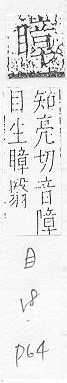 瞕
知亮切音障
目生瞕翳
目
18
P64